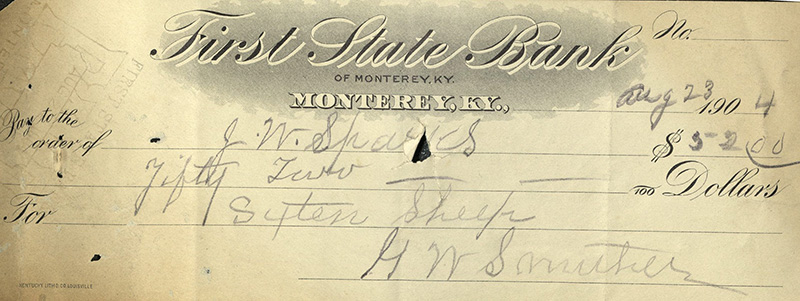 First State Bank
No.
OF MONTEREY, KY.
MONTEREY, KY., Aug 23 1904
Pay to the order of J. W. Sparks $ 52 00
Fifty Two 100 Dollars
For Sixten Sheep
G W Smither
KENTUCKY LITHO CO LOUISVILLE